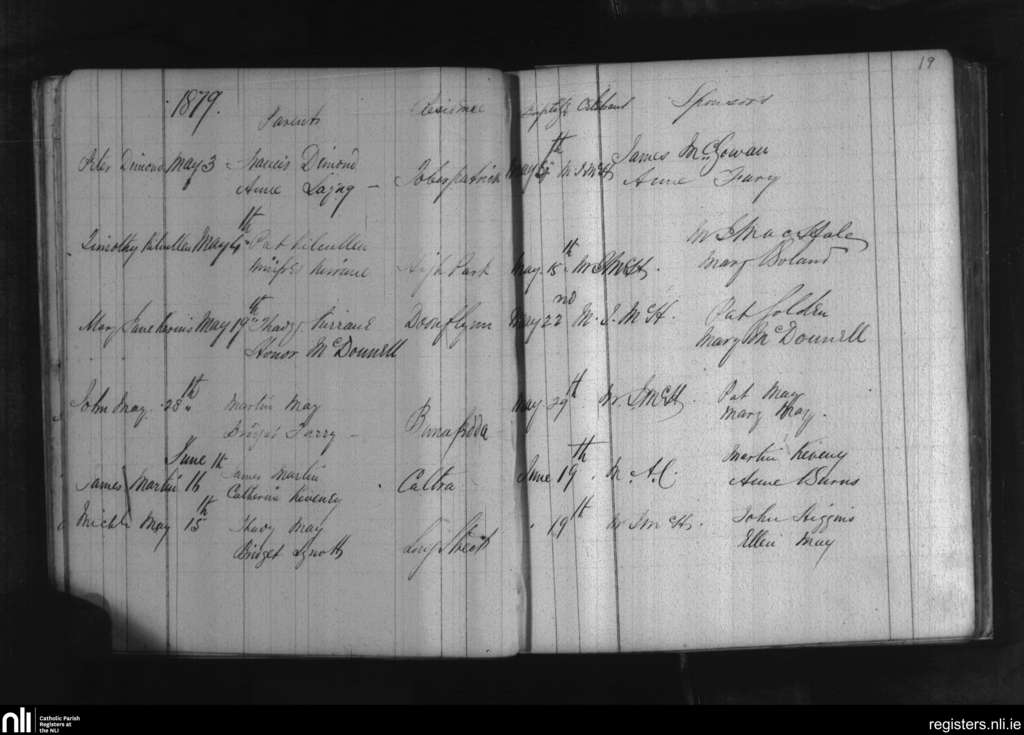 19
1879.
Parents Residence Baptized Celebrant Sponsors
Peter Dimond May 3 Francis Dimond May M J McH James McGowan
Anne Anne
Timothy Kilcullen May 4th Pat Kilcullen High Park May 15th M J McH. M J MacHale
Kirrane Mary Boland
Mary Jane May 19th Thady Kirrane Doonflynn May 22nd M. J. McH. Pat Golden
Honor McDonnell Mary McDonnell
John May 28th Martin May May 29th M. J McH Pat May
Bridget Parry – Mary May.
June 11th James Martin June 19th M. A. C. Martin Keveney
James Martin Catherine Keveney Caltra Anne Burns
Michl May 15th Thady May " 19th M J McH. John Higgins
Bridget Lynott Long Street Ellen May
nli
Catholic Parish
Registers at
the NLI
registers.nli.ie